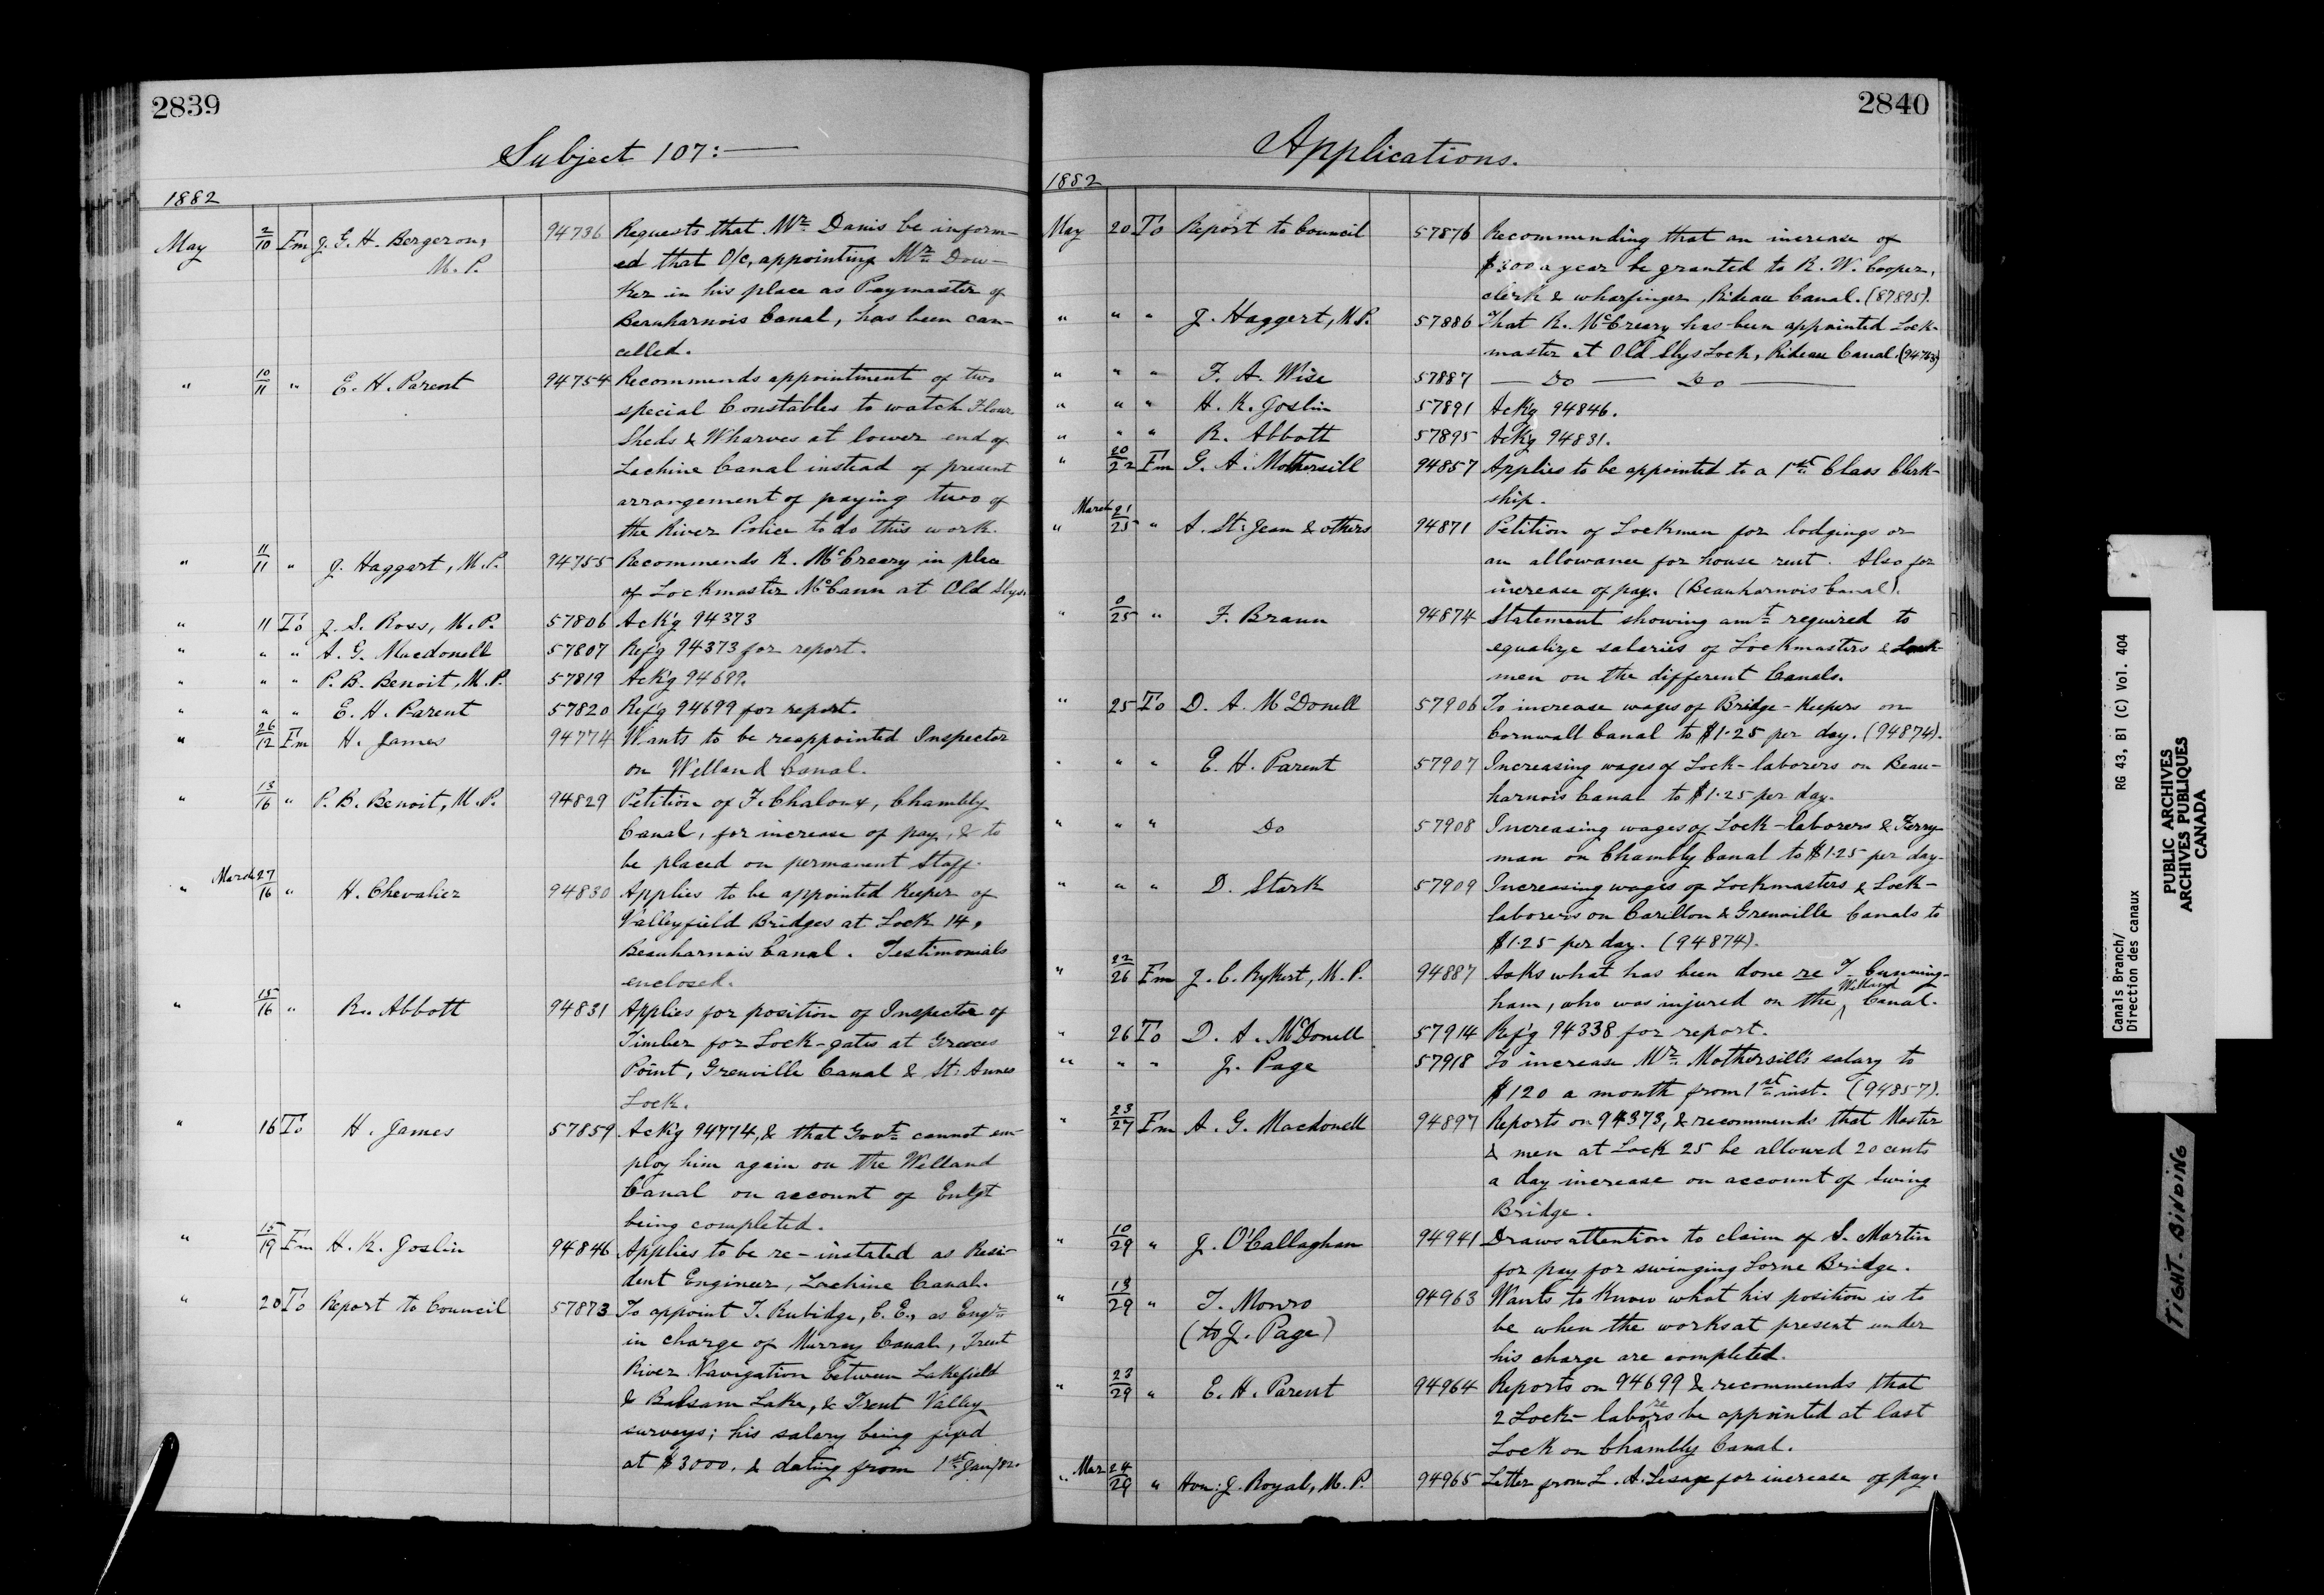 2839
Subject 107:—
1882
May 2/10 Fm J. G. H. Bergeron, 94736 Requests that Mr Danis be inform-
M.P. ed that O/C, appointing Mr Dow-
ker in his place as Paymaster of
Beauharnois Canal, has been can-
celled.
" 10/11 " E. H. Parent 94754 Recommends appointment of two
special Constables to watch Flour
Sheds & Wharves at lower end of
Lachine Canal instead of present
arrangement of paying two of
the River Police to do this work.
" 11/11 " J. Haggart, M.P. 94755 Recommends R. McCreary in place
of Lockmaster McCann at Old Slys.
" 11 To J. S. Ross, M.P. 57806 Ack'g 94373
" " " A. G. Macdonell 57807 Ref'g 94373 for report.
" " " P. B. Benoit, M.P. 57819 Ack'g 94699.
" " " E. H. Parent 57820 Ref'g 94699 for report.
" 26/12 Fm H. James 94774 Wants to be reappointed Inspector
on Welland Canal.
" 13/16 " P. B. Benoit, M.P. 94829 Petition of F. Chaloux, Chambly
Canal, for increase of pay, & to
be placed on permanent Staff.
" March 27/16 " H. Chevalier 94830 Applies to be appointed Keeper of
Valleyfield Bridges at Lock 14,
Beauharnois Canal. Testimonials
enclosed.
" 15/16 " R. Abbott 94831 Applies for position of Inspector of
Timber for Lock-gates at Greeces
Point, Grenville Canal & St. Annes
Lock.
" 16 To H. James 57859 Ack'g 94774, & that Govt cannot em-
ploy him again on the Welland
Canal on account of Enlgt
being completed.
" 15/19 Fm H. K. Joslin 94846 Applies to be re-instated as Resi-
dent Engineer, Lachine Canal.
" 20 To Report to Council 57873 To appoint T. Rubidge, C.E., as Engr
in charge of Murray Canal, Trent
River Navigation between Lakefield
& Balsam Lake, & Trent Valley
surveys; his salary being fixed
at $3000. & dating from 1st Jan/82.
2840
Applications.
1882
May 20 To Report to Council 57876 Recommending that an increase of
$300 a year be granted to R. W. Cooper,
clerk & wharfinger, Rideau Canal. (87895).
" " " J. Haggert, M.P. 57886 That R. McCreary has been appointed Lock-
master at Old Slys Lock, Rideau Canal. (94763)
" " " F. A. Wise 57887 — Do — Do —
" " " H. K. Joslin 57891 Ack'g 94846.
" " " R. Abbott 57895 Ack'g 94831.
" 20/22 Fm G. A. Mothersill 94857 Applies to be appointed to a 1st Class Clerk-
ship.
" March 21/25 " A. St. Jean & others 94871 Petition of Lockmen for lodgings or
an allowance for house rent. Also for
increase of pay. (Beauharnois Canal).
" 0/25 " F. Braun 94874 Statement showing amt required to
equalize salaries of Lockmasters & Lock-
men on the different Canals.
" 25 To D. A. McDonell 57906 To increase wages of Bridge-Keepers on
Cornwall Canal to $1.25 per day. (94874).
" " " E. H. Parent 57907 Increasing wages of Lock-laborers on Beau-
harnois Canal to $1.25 per day.
" " " Do 57908 Increasing wages of Lock-laborers & Ferry-
man on Chambly Canal to $1.25 per day.
" " " D. Stark 57909 Increasing wages of Lockmasters & Lock-
laborers on Carillon & Grenville Canals to
$1.25 per day. (94874).
" 22/26 Fm J. C. Rykert, M.P. 94887 Asks what has been done re T. Cunning-
ham, who was injured on the Welland Canal.
" 26 To D. A. McDonell 57914 Ref'g 94338 for report.
" " " J. Page 57918 To increase Mr Mothersill's salary to
$120 a month from 1st inst. (94857).
" 23/27 Fm A. G. Macdonell 94897 Reports on 94373, & recommends that Master
& men at Lock 25 be allowed 20 cents
a day increase on account of Swing
Bridge.
" 10/29 " J. O'Callaghan 94941 Draws attention to claim of S. Martin
for pay for swinging Lorne Bridge.
" 13/29 " T. Monro 94963 Wants to know what his position is to
(to J. Page) be when the works at present under
his charge are completed.
" 23/29 " E. H. Parent 94964 Reports on 94699 & recommends that
2 Lock-laborers be appointed at last
Lock on Chambly Canal.
" Mar 24/29 " Hon: J. Royal, M.P. 94965 Letter from L. A. Lesage for increase of pay.
Canals Branch/ RG 43, B1 (C) Vol. 404
Direction des canaux
PUBLIC ARCHIVES
ARCHIVES PUBLIQUES
CANADA
TIGHT BINDING